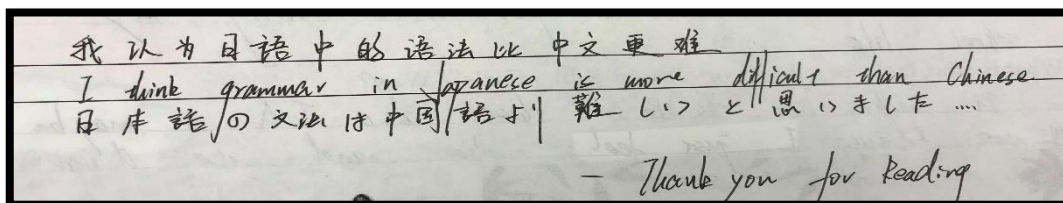 我认为日语中的语法比中文更难
I think grammar in Japanese is more difficult than Chinese
日本語の文法は中国語より難しいと思いました....
- Thank you for Reading